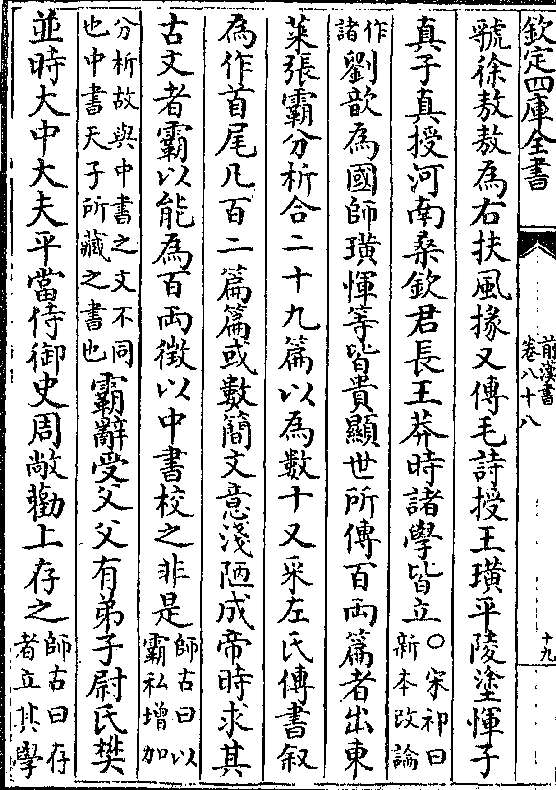 欽定四庫全書
前漢書
卷八十八
十九
虢徐敖敖為右扶風掾又傳毛詩授王璜平陵塗惲子
真子真授河南桑欽君長王莽時諸學皆立○宋祁曰新本改論
作諸劉歆為國師璜惲等皆貴顯世所傳百兩篇者出東
萊張霸分析合二十九篇以為數十又采左氏傳書叙
為作首尾凡百二篇篇或數簡文意淺陋成帝時求其
古文者霸以能為百兩徵以中書校之非是師古曰以霸私增加
分析故與中書之文不同也中書天子所藏之書也霸辭受父父有弟子尉氏樊
並時大中大夫平當侍御史周敞勸上存之師古曰存者立其學